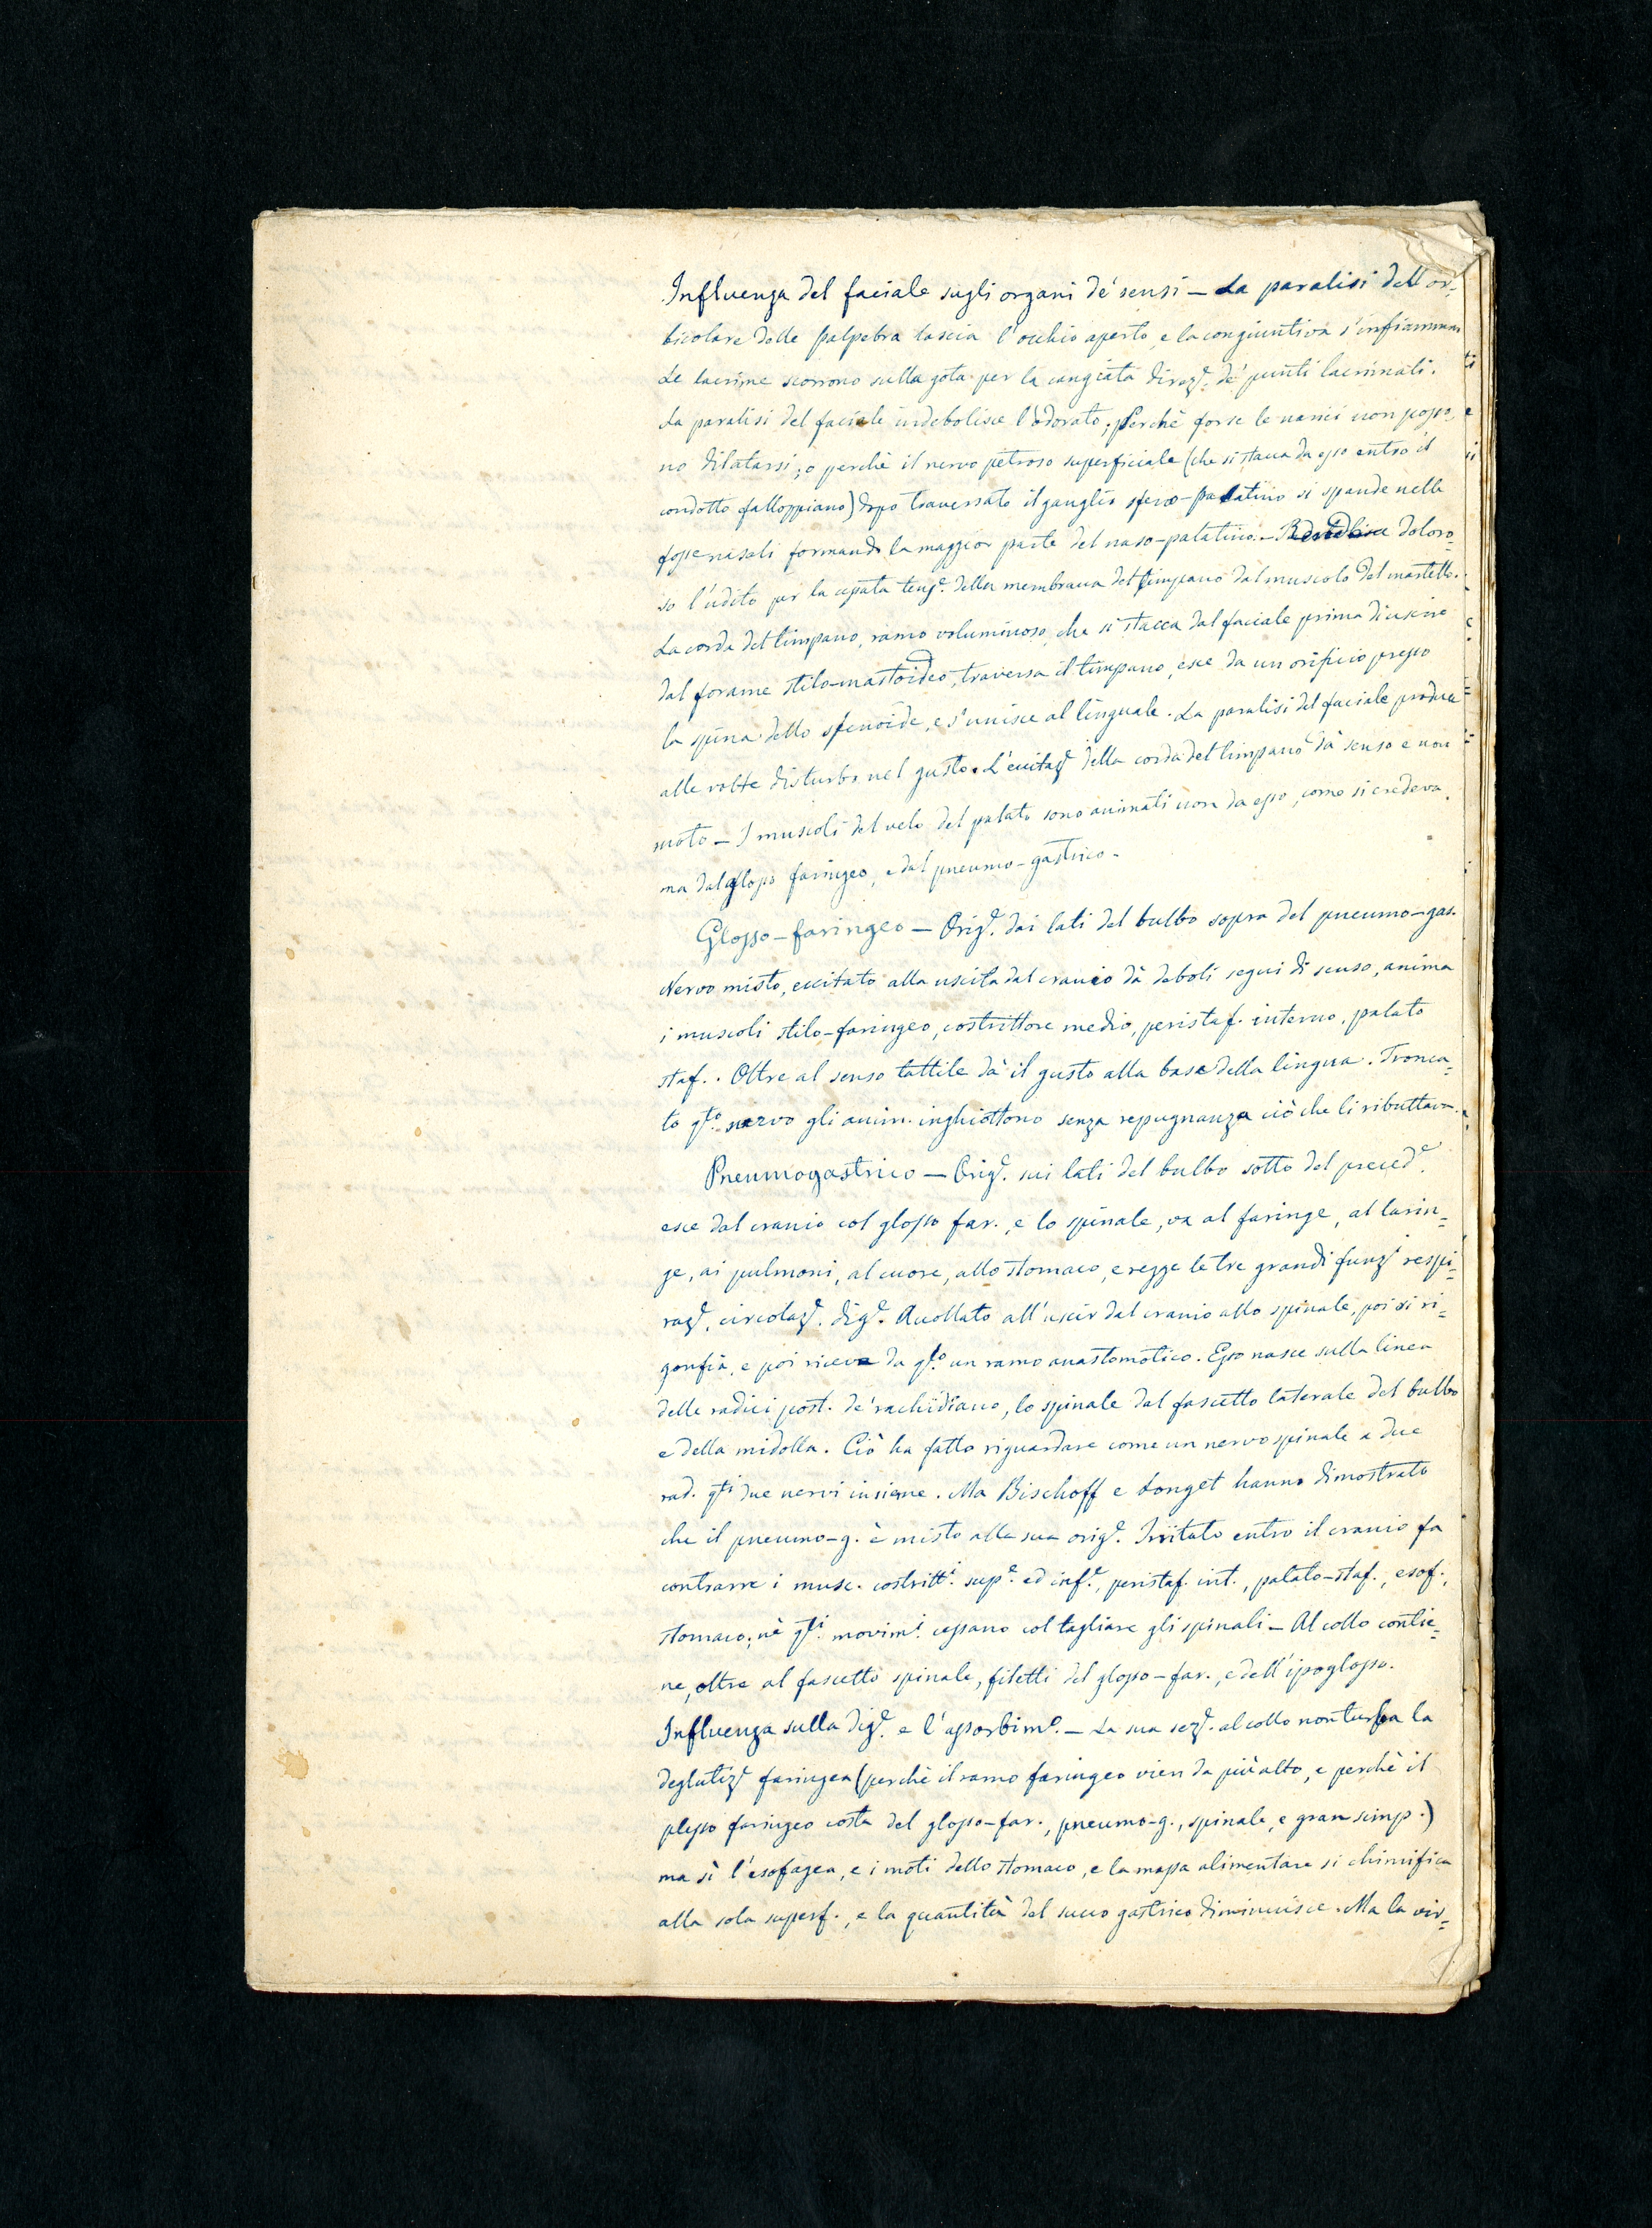 Influenza del faciale sugli organi de' sensi — La paralisi dell'or=
bicolare delle palpebra lascia l'occhio aperto, e la congiuntiva s'infiamma
Le lacrime scorrono sulla gota per la cangiata direzᵉ. de' punti lacrimali.
La paralisi del faciale indebolisce l'odorato; perchè forse le narici non posso=
no dilatarsi; o perchè il nervo petroso superficiale (che si stacca da esso entro il
condotto falloppiano) dopo traversato il ganglio sfeno-palatino si spande nelle
fosse nasali formando la maggior parte del naso-palatino. — Rende doloro=
so l'udito per la cessata tensᵉ. della membrana del timpano dal muscolo del martello.
La corda del timpano, ramo voluminoso, che si stacca dal faciale prima di uscire
dal forame stilo-mastoideo, traversa il timpano, esce da un orificio presso
la spina dello sfenoide, e s'unisce al linguale. La paralisi del faciale produce
alle volte disturbo nel gusto. L'eccitazᵉ della corda del timpano dà senso e non
moto — I muscoli del velo del palato sono animati non da esso, come si credeva,
ma dal glosso faringeo, e dal pneumo-gastrico.
Glosso-faringeo — Origᵉ. dai lati del bulbo sopra del pneumo-gas.
Nervo misto, eccitato alla uscita dal cranio dà deboli segni di senso, anima
i muscoli stilo-faringeo, costrittore medio, peristaf. interno, palato
staf.. Oltre al senso tattile dà il gusto alla base della lingua. Tronca=
to qᵗᵒ. nervo gli anim. inghiottono senza repugnanza ciò che li ributtava.
Pneumogastrico — Origᵉ. sui lati del bulbo sotto del precedᵉ.
esce dal cranio col glosso far., e lo spinale, va al faringe, al larin=
ge, ai pulmoni, al cuore, allo stomaco, e regge le tre grandi funzⁱ respi=
razᵉ, circolazᵉ. digᵉ. Accollato all'uscir dal cranio allo spinale, poi si ri=
gonfia, e poi riceve da qᵗᵒ. un ramo anastomotico. Esso nasce sulla linea
delle radici post. de' rachidiano, lo spinale dal fascetto laterale del bulbo
e della midolla. Ciò ha fatto riguardare come un nervo spinale a due
rad. qᵗⁱ due nervi insieme. Ma Bischoff e Longet hanno dimostrato
che il pneumo-g. è misto alla sua origᵉ. Irritato entro il cranio fa
contrarre i musc. costrittⁱ. supᵉ. ed infᵉ., peristaf. int., palato-staf., esof.,
stomaco; nè qᵗⁱ. movimⁱ. cessano col tagliare gli spinali — Al collo contie=
ne, oltre al fascetto spinale, filetti del glosso-far., e dell'ipoglosso.
Influenza sulla digᵉ. e l'assorbimᵒ. — La sua sezᵉ. al collo non turba la
deglutizᵉ faringea (perchè il ramo faringeo vien da più alto, e perchè il
plesso faringeo costa del glosso-far., pneumo-g., spinale, e gran simp.)
ma sì l'esofagea, e i moti dello stomaco, e la massa alimentare si chimifica
alla sola superf., e la quantità del succo gastrico diminuisce. Ma la vir=